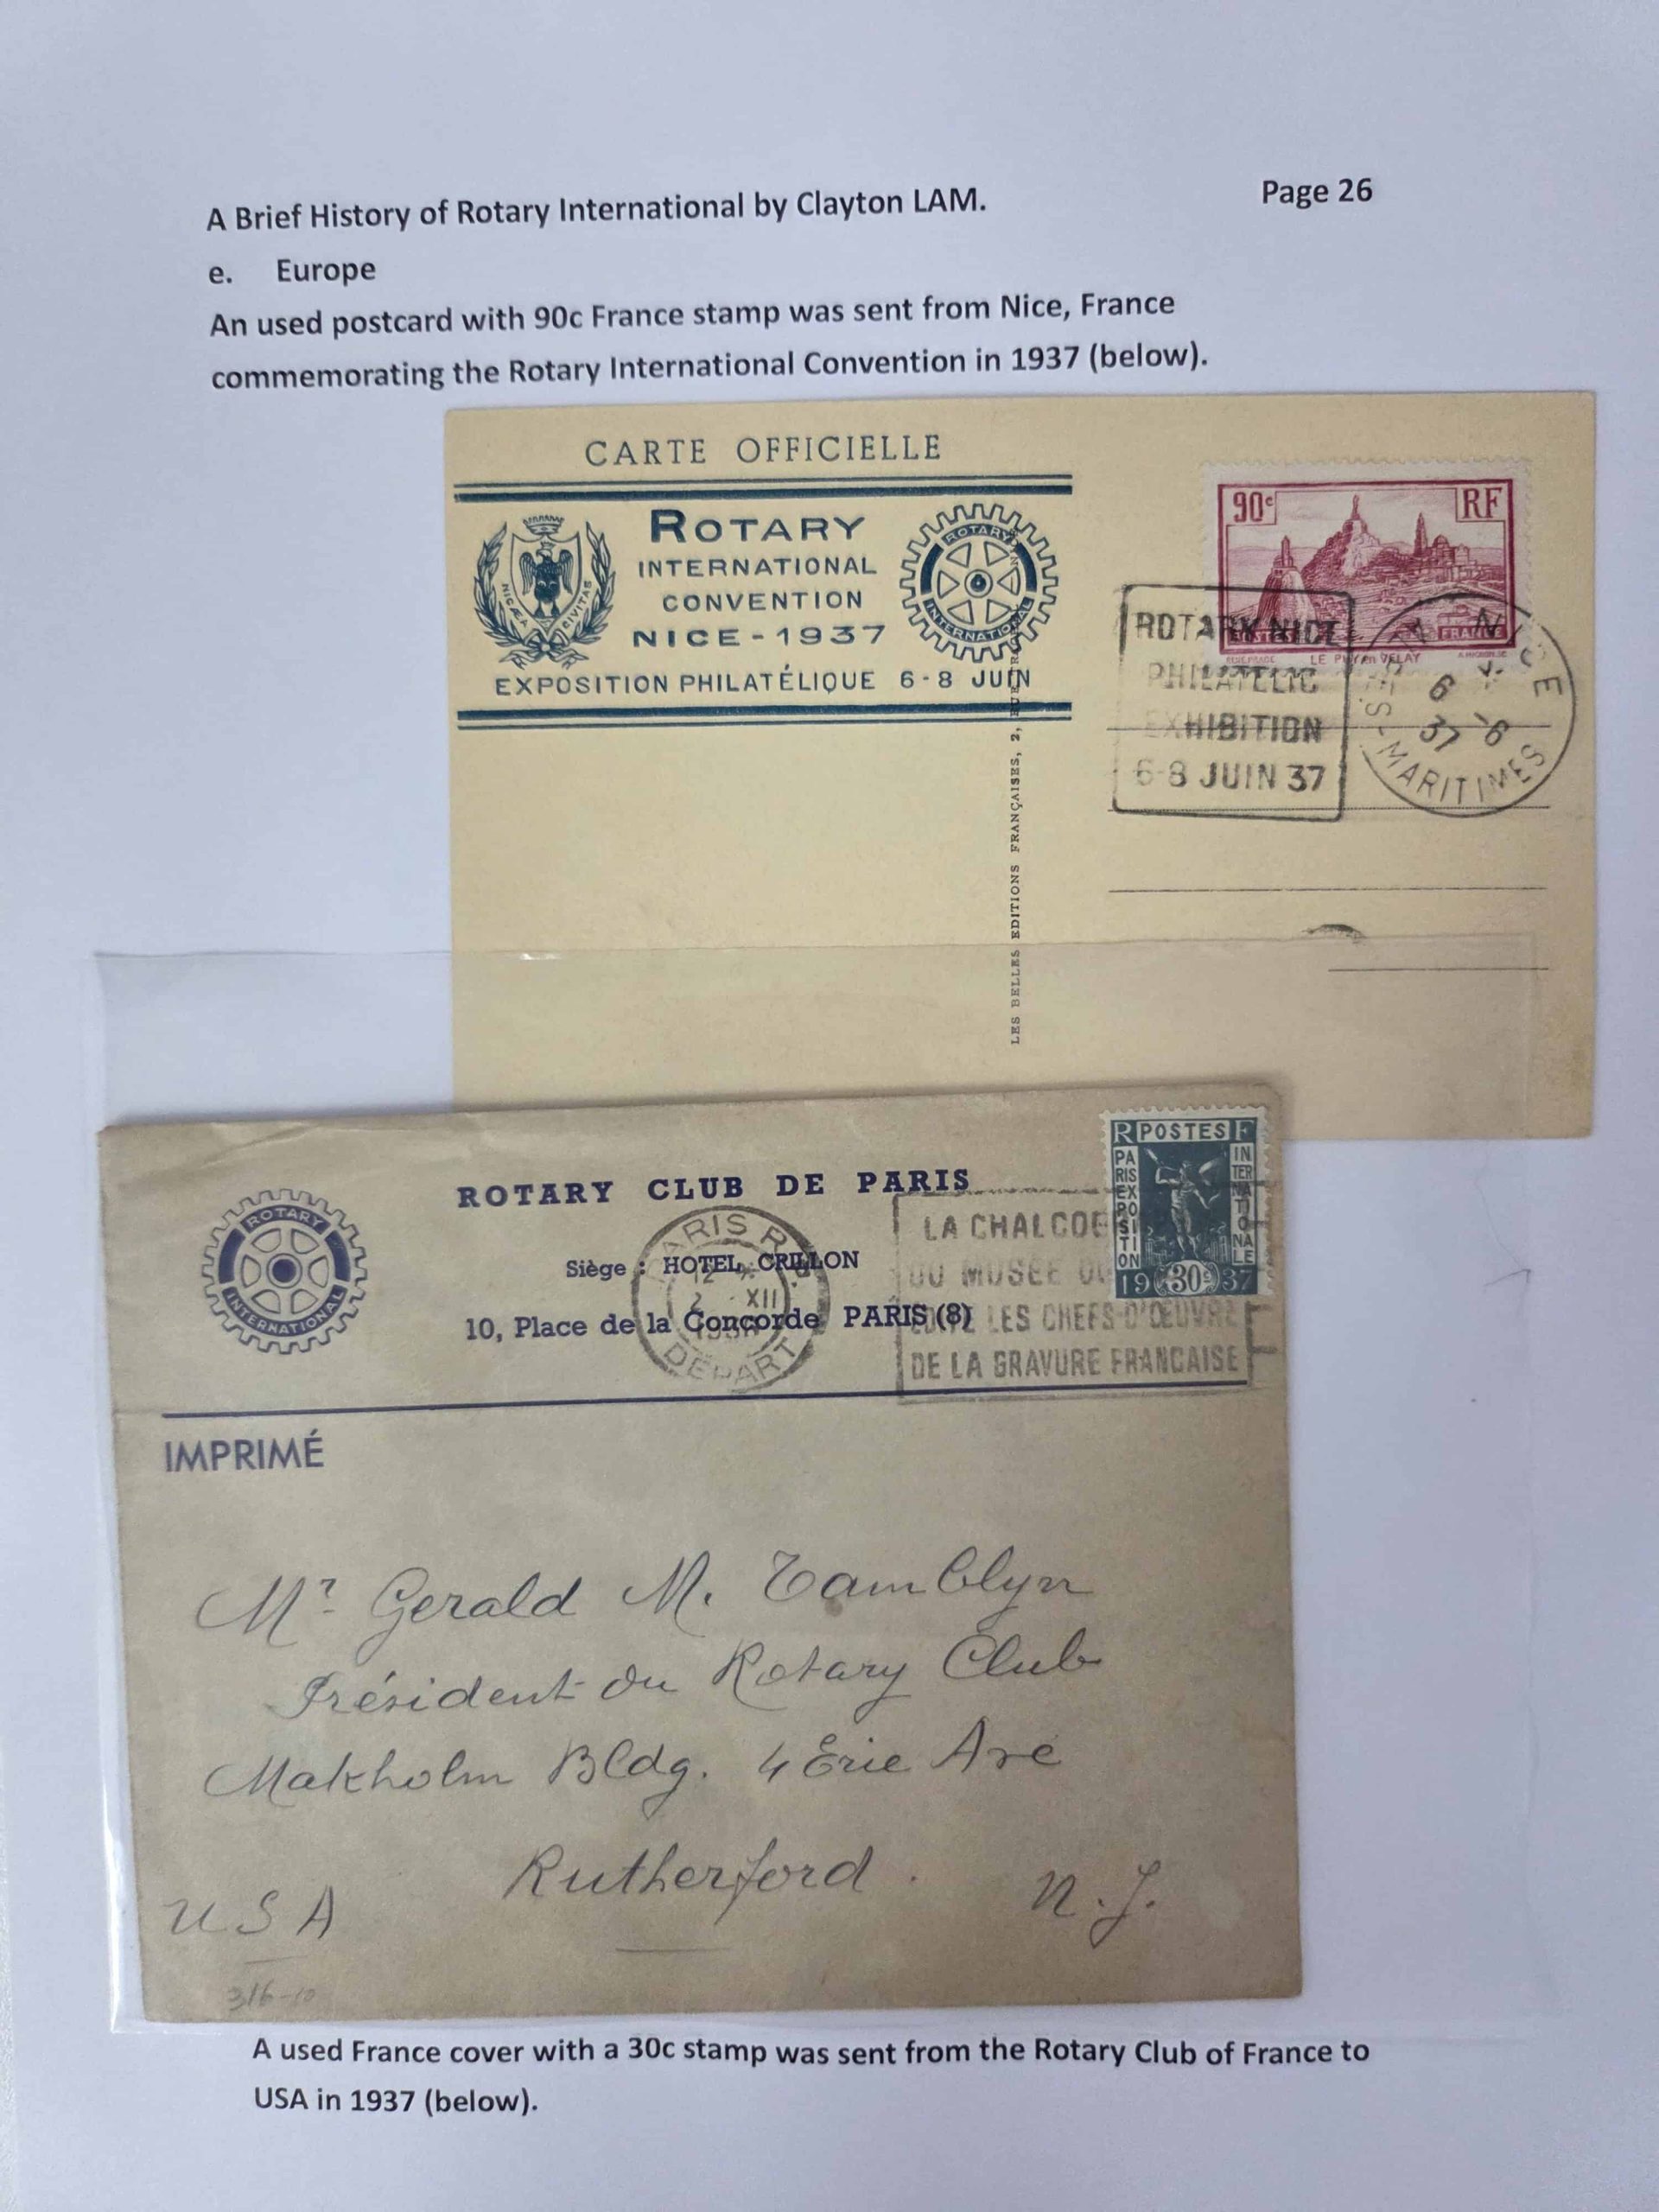 A Brief History of Rotary International by Clayton LAM. Page 26
e. Europe
An used postcard with 90c France stamp was sent from Nice, France
commemorating the Rotary International Convention in 1937 (below).
CARTE OFFICIELLE
ROTARY
INTERNATIONAL
CONVENTION
NICE - 1937
EXPOSITION PHILATÉLIQUE 6 - 8 JUIN
NICÆA CIVITAS
ROTARY
INTERNATIONAL
90c RF
LE PUY en VELAY
FRANCE
ROTARY NICE
PHILATELIC
EXHIBITION
6-8 JUIN 37
NICE
6 -6
37
S-MARITIMES
LES BELLES EDITIONS FRANÇAISES, 2, RUE
ROTARY CLUB DE PARIS
Siège : HOTEL CRILLON
10, Place de la Concorde PARIS (8)
ROTARY
INTERNATIONAL
PARIS R.P.
12
2 XII
DEPART
LA CHALCOG
DU MUSEE DU
EDITE LES CHEFS-D'ŒUVRE
DE LA GRAVURE FRANCAISE
R POSTES F
PARIS EXPOSITION
INTERNATIONALE
19 30c 37
IMPRIMÉ
Mr Gerald M. Tamblyn
Président du Rotary Club
Makholm Bldg. 4 Erie Ave
Rutherford . N. J.
USA
316-10
A used France cover with a 30c stamp was sent from the Rotary Club of France to
USA in 1937 (below).